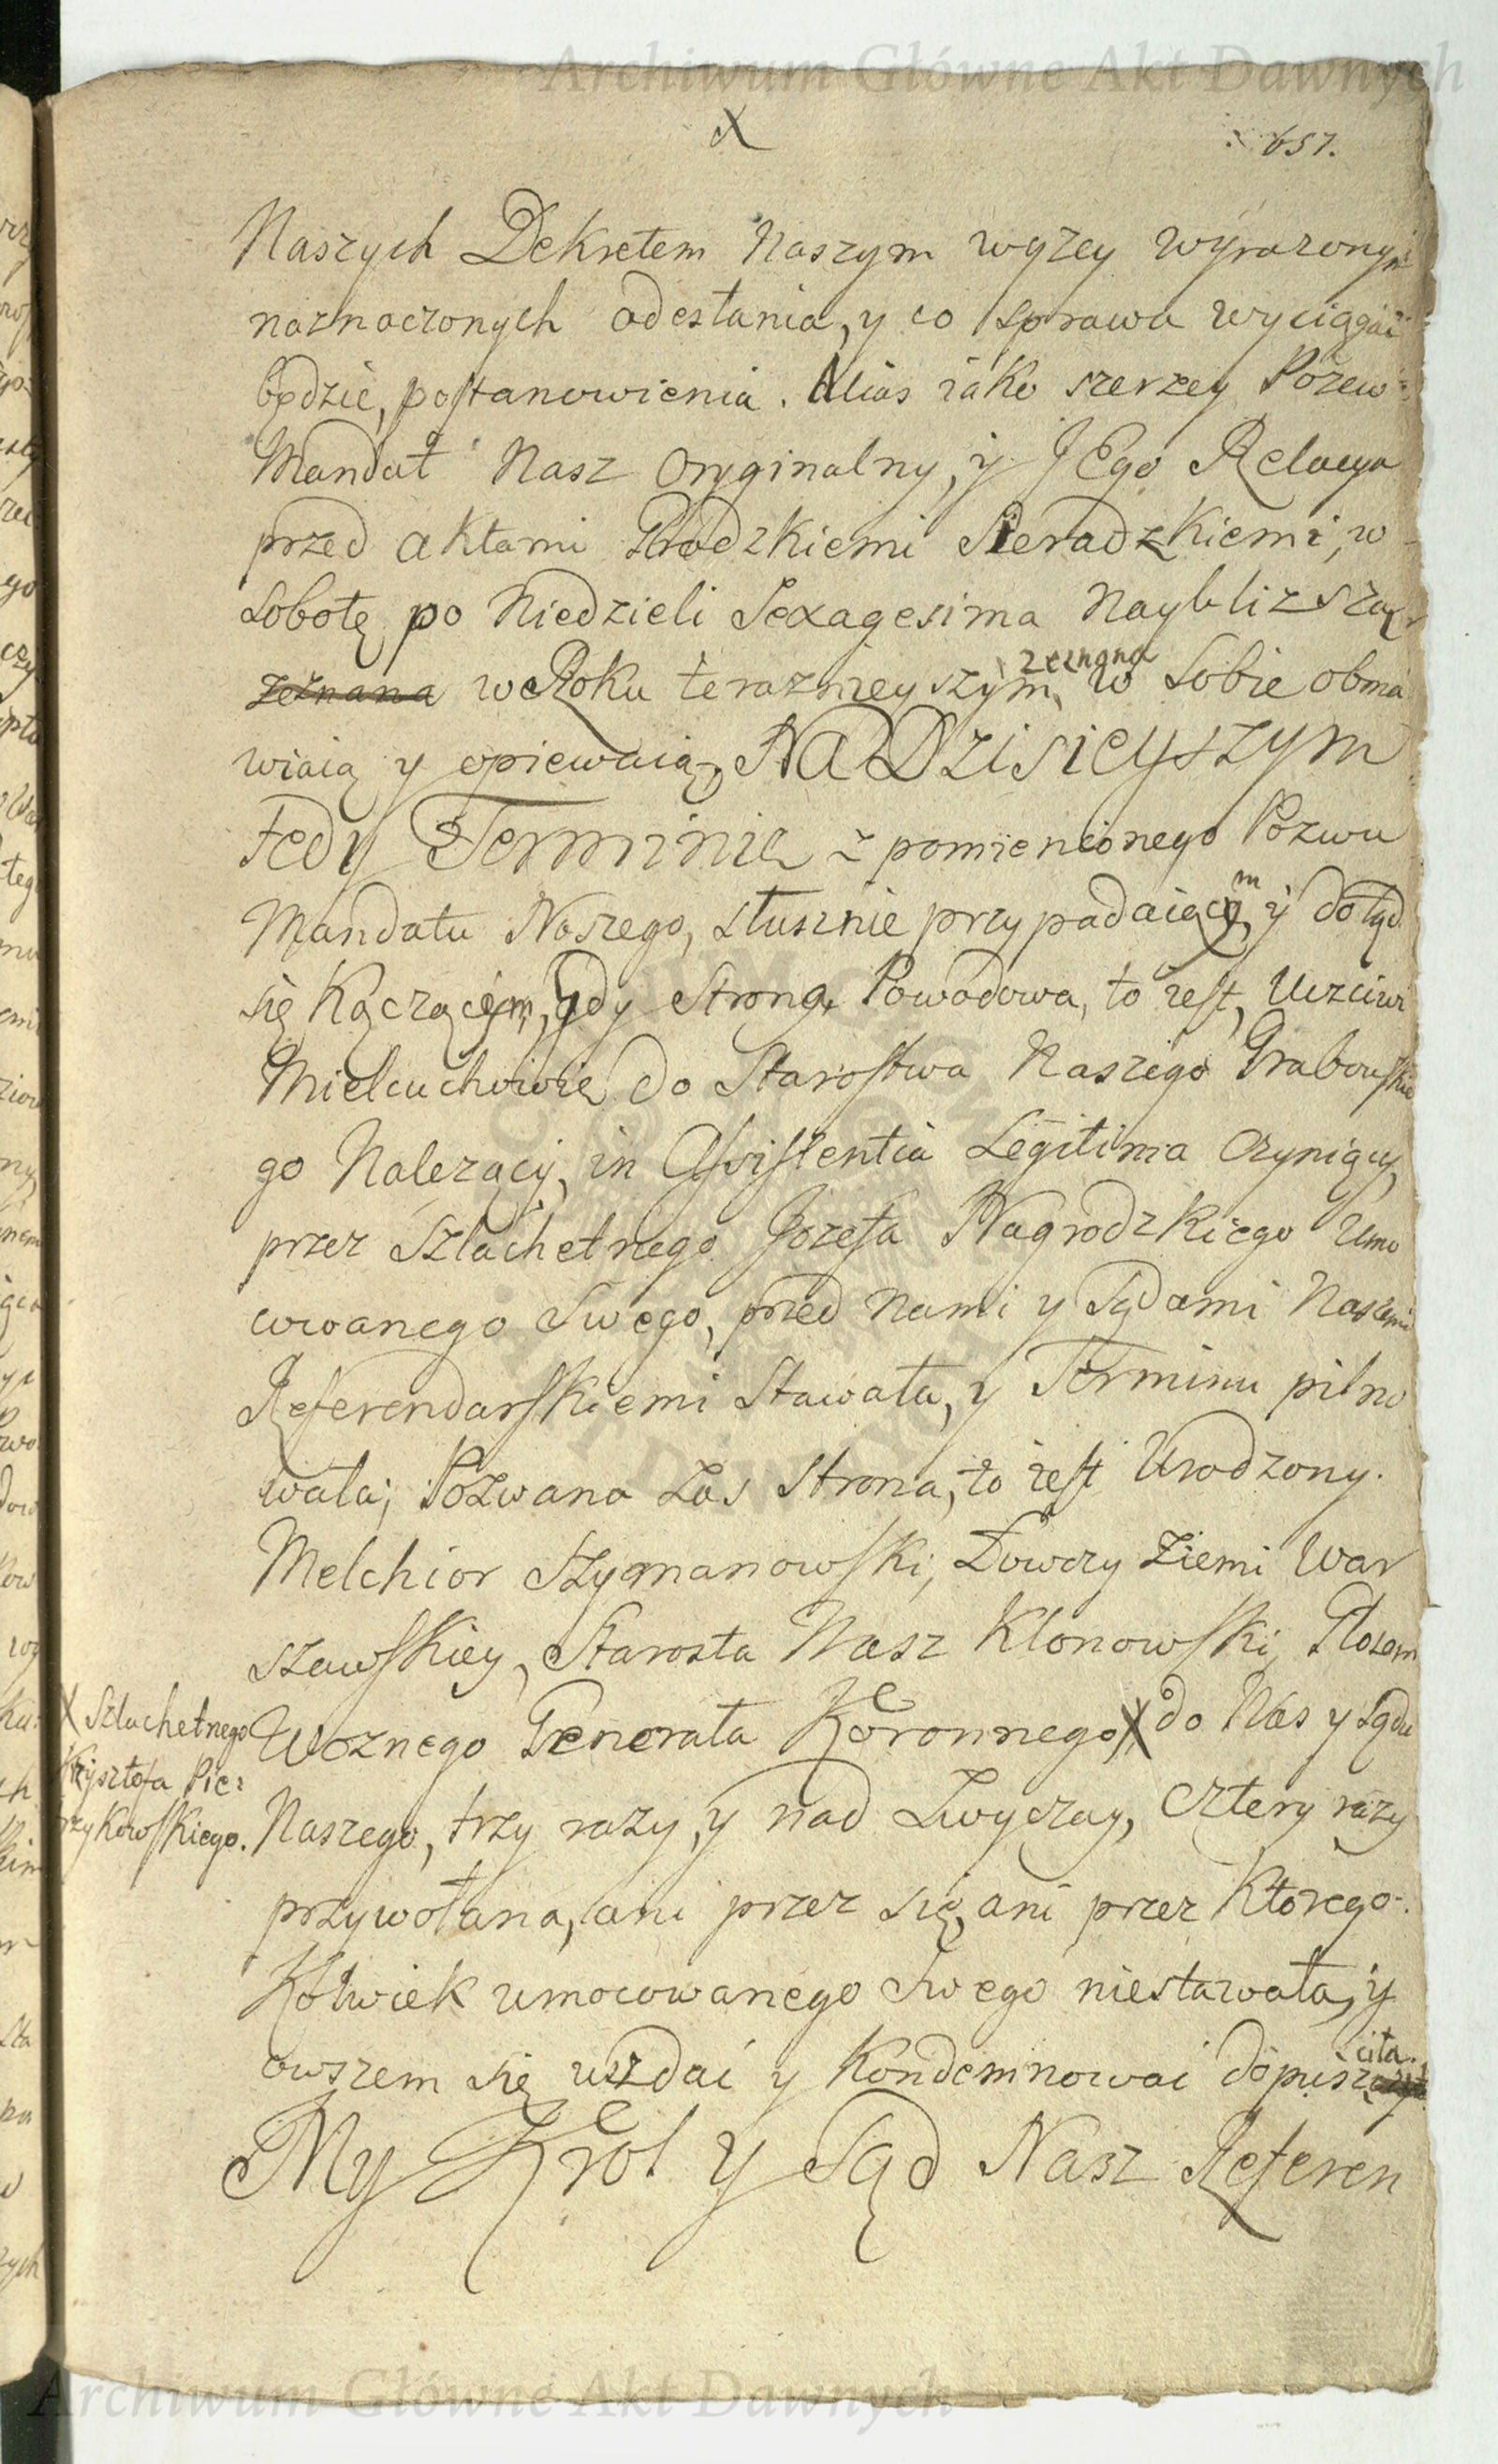 Archiwum Główne Akt Dawnych
X
657.
Naszych Dekretem Naszym wyzey wyrazonym
naznaczonych odesłania, y co sprawa wyciągać
będzie, postanowienia. Alias iako szerzey Pozew
Mandat Nasz Oryginalny, y JEgo Relacya
przed aktami Grodzkiemi Sieradzkiemi, w
Sobotę po Niedzieli Sexagesima Nayblizszą
zeznana w Roku teraznieyszym, zeznana w Sobie obma
wiaią y opiewaią, NA DZisieyszym
Tedy Terminie z pomienionego Pozwu
Mandatu Naszego, słusznie przypadaiącym y dotąd
się Kączącym, gdy Strona Powodowa, to iest, Uczciwi
Mielcuchowie do Starostwa Naszego Grabowskie
go Nalezący, in Assistentia Legitima Czyniący,
przez Szlachetnego Jozefa Nagrodzkiego Umo
cowanego Swego, przed Nami y Sądami Naszemi
Referendarskiemi Stawała, y Terminu pilno
wała; Pozwana Zas Strona, to iest Urodzony
Melchior Szymanowski, Łowczy Ziemi War
szawskiey, Starosta Nasz Klonowski, Głosem
Woznego Generała Koronnego X do Nas y Sądu
X Szlachetnego
Krzysztofa Pie:
rzykowskiego.
Naszego, trzy razy, y nad Zwyczay, Cztery razy
przywołana, ani przez się, ani przez Ktorego-
Kolwiek umocowanego Swego niestawała, y
owszem się wzdać y Kondemnować dopuściła.
My Krol y Sąd Nasz Referen
Archiwum Główne Akt Dawnych